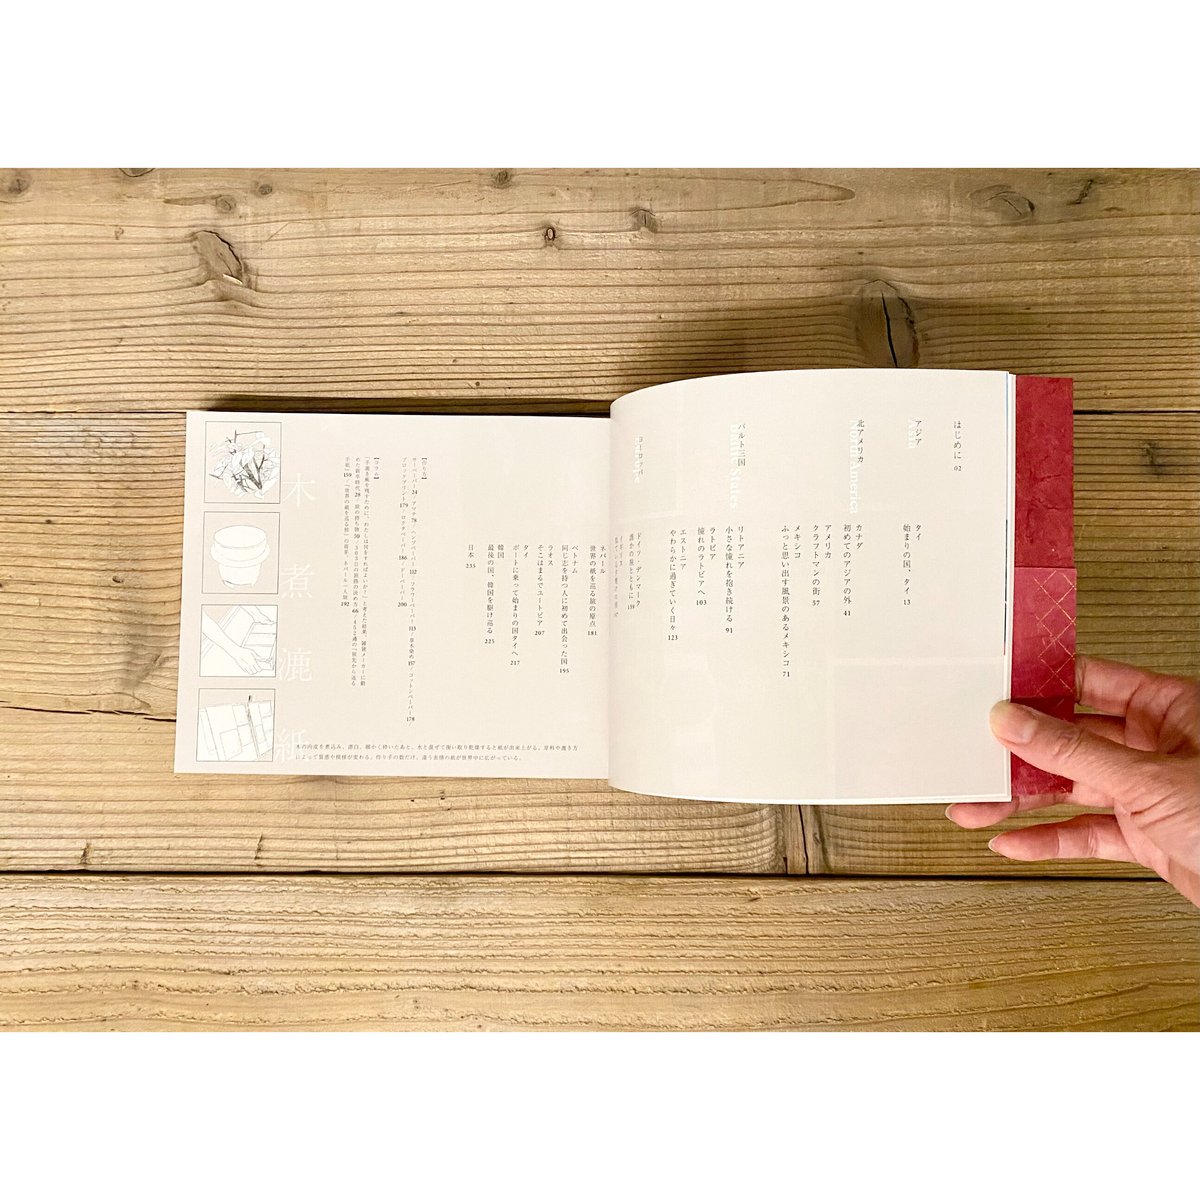 はじめに 02
アジア
Asia
タイ
始まりの国、タイ 13
北アメリカ
North America
カナダ
初めてのアジアの外 41
アメリカ
クラフトマンの街 57
メキシコ
ふっと思い出す風景のあるメキシコ 71
バルト三国
Baltic States
リトアニア
小さな憧れを抱き続ける 91
ラトビア
憧れのラトビアへ 103
エストニア
やわらかに過ぎていく日々 123
ヨーロッパ
ドイツ/デンマーク
誰かの旅とともに 139
イギリス
ネパール
世界の紙を巡る旅の原点 181
ベトナム
同じ志を持つ人に初めて出会った国 195
ラオス
そこはまるでユートピア 207
タイ
ボートに乗って始まりの国タイへ 217
韓国
最後の国、韓国を駆け巡る 225
日本 235
【作り方】
サーペーパー 24 / アマテ 78 / ヘンプペーパー 112 / フラワーペーパー 113 / 草木染め 157 / コットンペーパー 178
ブロックプリント 179 / ロクタペーパー 186 / ドーペーパー 200
【コラム】
「手漉き紙を残すために、わたしは何をすればよいか？」と考えた結果、雑貨メーカーに勤
めた新卒時代 28 / 旅の持ち物 50 / 303日の旅路の決め方 66 / 452通の「旅先から送る
手紙」 159 / 『世界の紙を巡る旅』の前夜、ネパール一人旅 192
木
煮
漉
紙
木の内皮を煮込み、漂白、細かく砕いたあと、水と混ぜて掬い取り乾燥すると紙が出来上がる。原料や漉き方
によって質感や模様が変わる。作り手の数だけ、違う表情の紙が世界中に広がっている。